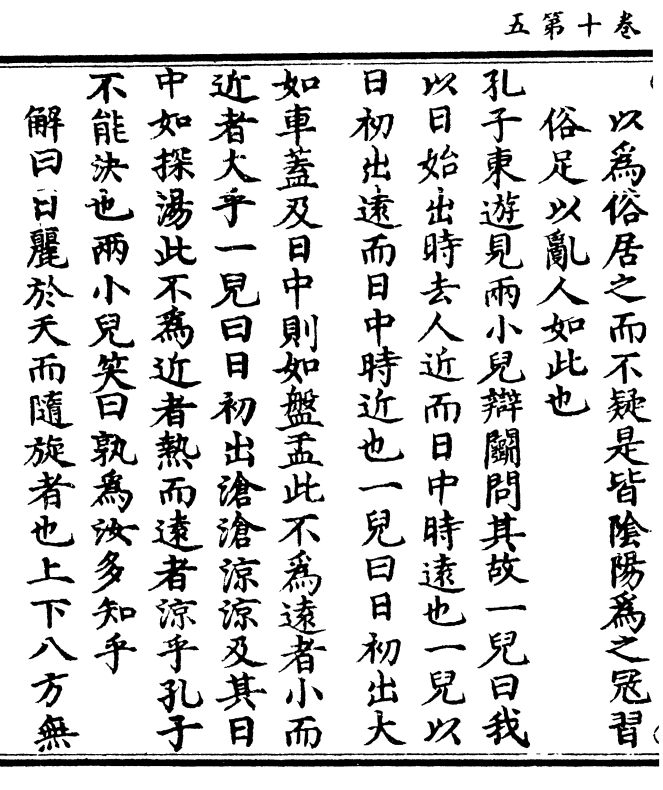 卷十第五
以為俗居之而不疑是皆陰陽為之冦習
俗足以亂人如此也
孔子東遊見兩小兒辯鬭問其故一兒曰我
以日始出時去人近而日中時遠也一兒以
日初出遠而日中時近也一兒曰日初出大
如車蓋及日中則如盤盂此不為遠者小而
近者大乎一兒曰日初出滄滄涼涼及其日
中如探湯此不為近者熱而遠者涼乎孔子
不能決也兩小兒笑曰孰為汝多知乎
解曰日麗於天而隨旋者也上下八方無